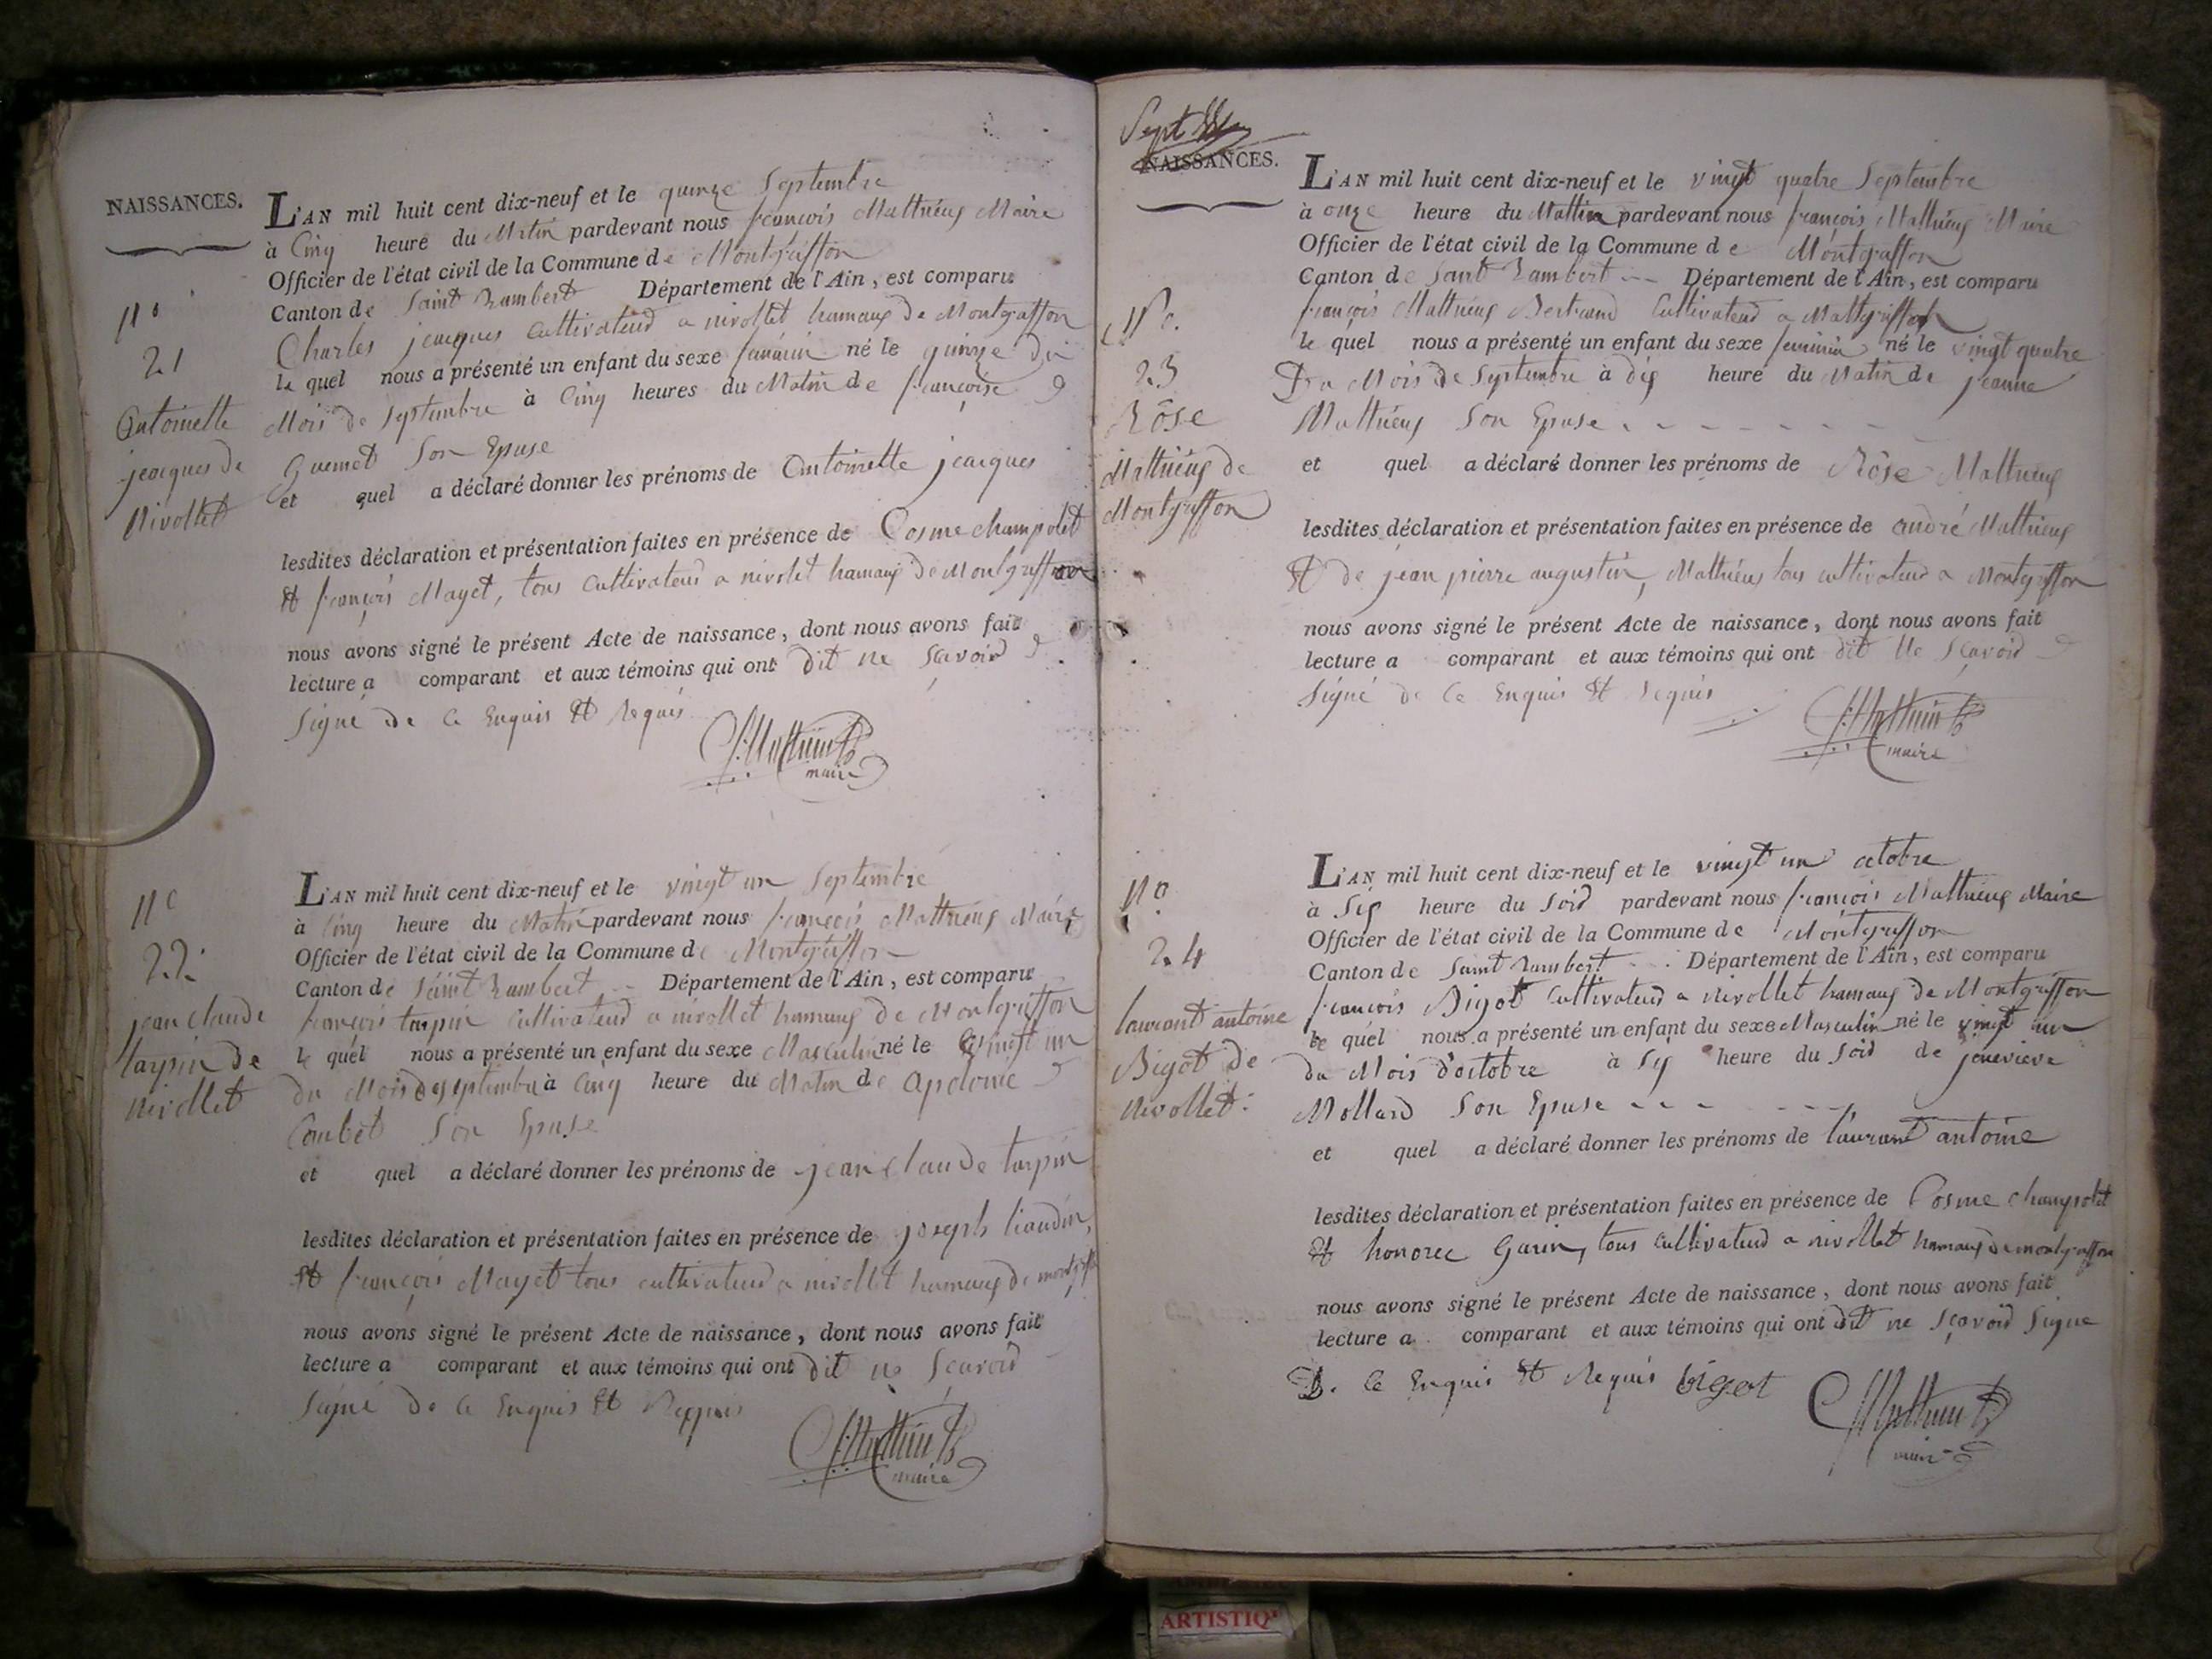 NAISSANCES.
L'AN mil huit cent dix-neuf et le quinze Septembre
à Cinq heure du Matin pardevant nous françois Matthieuz Maire
Officier de l'état civil de la Commune de Montgriffon
Canton de Saint Rambert Département de l'Ain, est comparu
Charles jeacques Cultivateur a nivollet hamaux de Montgriffon
le quel nous a présenté un enfant du sexe féminin né le quinze du
Mois de Septembre à Cinq heures du Matin de françoise
Son Epuse
et quel a déclaré donner les prénoms de Antoinette jeacques
lesdites déclaration et présentation faites en présence de Cosme champolet
Et françois Mayet, tous Cultivateurs a nivolet hamaux de Montgriffon
nous avons signé le présent Acte de naissance, dont nous avons fait
lecture a comparant et aux témoins qui ont dit ne sçavoir
Signé de Ce Enquis Et Requis
maire
N°
21
Antoinette
jeacques de
Nivollet
L'AN mil huit cent dix-neuf et le vingt un Septembre
à Cinq heure du Matin pardevant nous françois Matthieuz Maire
Officier de l'état civil de la Commune de Montgriffon
Canton de Saint Rambert Département de l'Ain, est comparu
françois tarpin Cultivateur a nivollet hamaux de Montgriffon
le quel nous a présenté un enfant du sexe Masculin né le vingt un
du Mois de Septembre à Cinq heure du Matin de Apolonie
Combet Son Epuse
et quel a déclaré donner les prénoms de jean claude tarpin
lesdites déclaration et présentation faites en présence de joseph liaudin,
Et françois Mayet tous cultivateurs a nivollet hamaux de
nous avons signé le présent Acte de naissance, dont nous avons fait
lecture a comparant et aux témoins qui ont dit ne Scavoir
Signé de Ce Enquis Et Requis
maire
N°
22
jean claude
tarpin de
nivollet
NAISSANCES.
L'AN mil huit cent dix-neuf et le vingt quatre Septembre
à onze heure du Mattin pardevant nous françois Matthieuz Maire
Officier de l'état civil de la Commune de Montgriffon
Canton de Saint Rambert Département de l'Ain, est comparu
françois Matthieuz Bertrand Cultivateur a Montgriffon
le quel nous a présenté un enfant du sexe feminin né le vingt quatre
Du Mois de Septembre à dix heure du Matin de jeanne
Matthieuz Son Epuse
et quel a déclaré donner les prénoms de Rôse Matthieuz
lesdites déclaration et présentation faites en présence de andré Matthieuz
Et de jean pierre augustin, Matthieuz tous cultivateurs a Montgriffon
nous avons signé le présent Acte de naissance, dont nous avons fait
lecture a comparant et aux témoins qui ont dit Ne Sçavoir
Signé de Ce Enquis Et Requis
maire
N°.
23
Rôse
Matthieuz de
Montgriffon
L'AN mil huit cent dix-neuf et le vingt un octobre
à Six heure du Soir pardevant nous françois Matthieuz Maire
Officier de l'état civil de la Commune de Montgriffon
Canton de Saint Rambert Département de l'Ain, est comparu
françois Bigot Cultivateur a Nivollet hamaux de Montgriffon
le quel nous a présenté un enfant du sexe Masculin né le vingt un
du Mois d'octobre à Six heure du Soir de jenevieve
Mollard Son Epuse
et quel a déclaré donner les prénoms de laurant antoine
lesdites déclaration et présentation faites en présence de Cosme champolet
Et honoree Garin, tous Cultivateurs a nivollet hamaux de montgriffon
nous avons signé le présent Acte de naissance, dont nous avons fait
lecture a comparant et aux témoins qui ont dit ne sçavoir Signe
De Ce Enquis Et Requis bigot
maire
N°
24
laurant antoine
Bigot de
Nivollet
ARTISTIQ